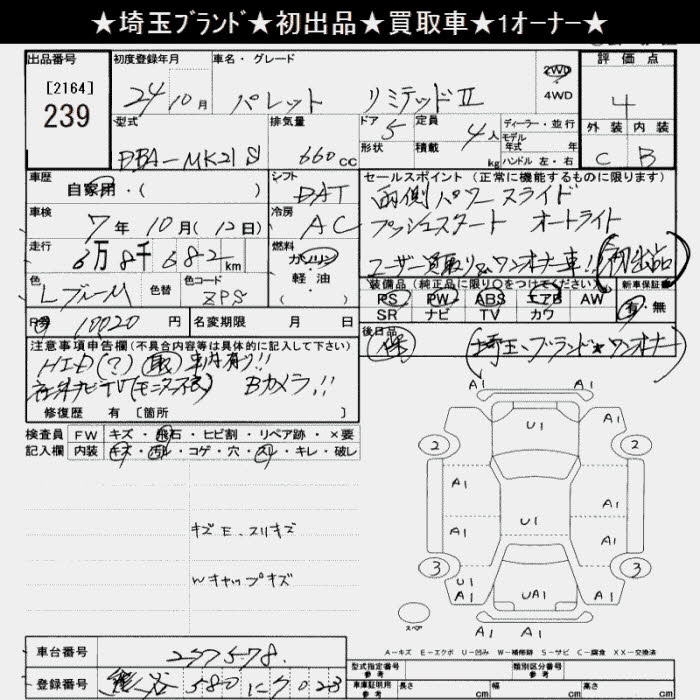 ★埼玉ﾌﾞﾗﾝﾄﾞ★初出品★買取車★1オーナー★
出品番号 初度登録年月 車名・グレード 2WD 評価点
[2164] 24年10月 パレット リミテッドII 4WD 4
239 型式 排気量 ドア 5 定員 4人 ディーラー・並行 外装 内装
DBA-MK21S 660cc 形状 積載 kg モデル年式 年 C B
ハンドル 左・右
車歴 自家用・( ) シフト DAT セールスポイント (正常に機能するものに限ります)
両側パワースライド
車検 7年10月(12日) 冷房 AC プッシュスタート オートライト
走行 6万8千682km 燃料 ガソリン・軽油 ユーザー買取り ワンオーナー車!! (初出品)
色 LブルーM 色替 色コード ZPS 装備品 (純正品に限り○をつけてください) 新車保証書
PS PW ABS エアB AW 有・無
SR ナビ TV カワ
R券 10020円 名変期限 月 日 後日品
保 (埼玉ブランド★ワンオーナー)
注意事項申告欄(不具合内容等は具体的に記入して下さい)
HID(?) 取 車内有り!!
社外ナビTV(モニター不良) Bカメラ!!
修復歴 有 [箇所 ]
検査員 FW キズ・飛石・ヒビ割・リペア跡・×要
記入欄 内装 キズ・汚れ・コゲ・穴・スレ・キレ・破レ
キズE、スリキズ
Wキャップキズ
A1 A1
U1
2 2
A1 A1
A1 U1 A1
3 3
U1 A1 UA1 A1
スペア A1 A1
A-キズ E-エクボ U-凹み W-補修跡 S-サビ C-腐食 XX-交換済
車台番号 237578
登録番号 熊谷 580 に7023
型式指定番号 参考 類別区分番号 参考
車庫証明用 参考 長さ cm 幅 cm 高さ cm